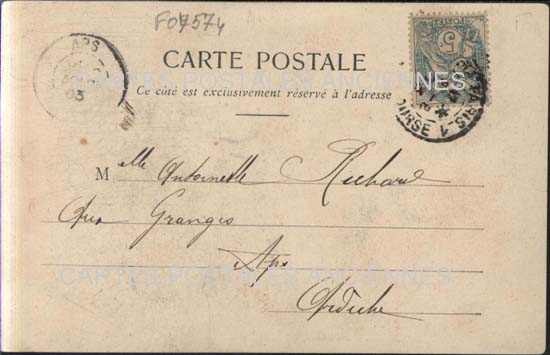 F07574
APS
03
CARTE POSTALE
Ce côté est exclusivement réservé à l'adresse
POSTES
5
PARIS 1
BOURSE
CARTES POSTALES ANCIENNES
Melle Antoinette Richard
Aux Granges
Aps
CARTES POSTALES ANCIENNES
Ardèche